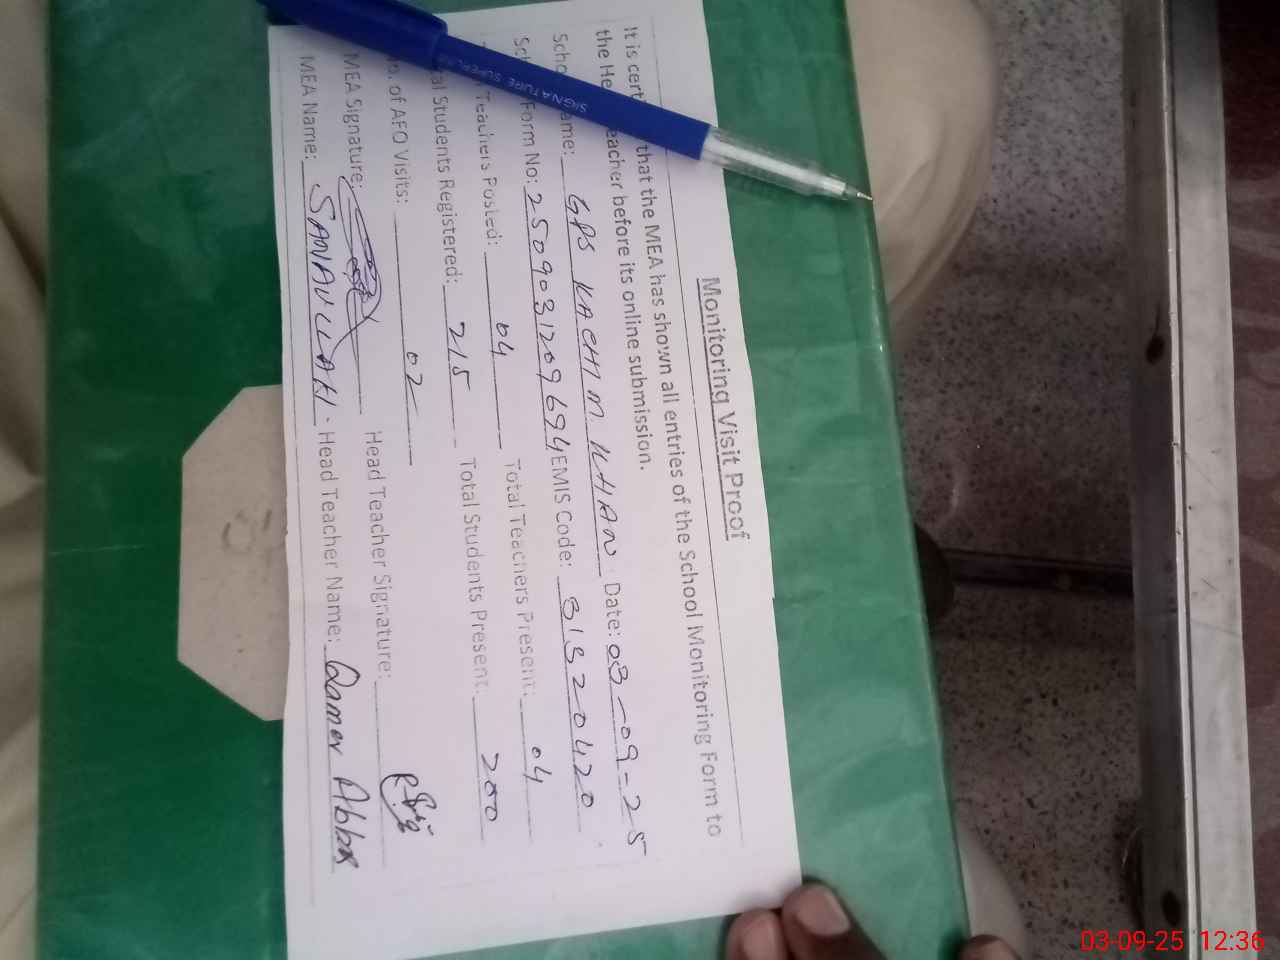 Monitoring Visit Proof
It is cert that the MEA has shown all entries of the School Monitoring Form to
the He eacher before its online submission.
Scho ame: GPS KACHI M. KHAN Date: 03-09-25
Sch Form No: 250903120969 4 EMIS Code: 31320420
Teachers Posted: 04 Total Teachers Present: 04
al Students Registered: 215 Total Students Present: 200
No. of AFO Visits: 02
MEA Signature: Head Teacher Signature:
MEA Name: SANAULLAH. Head Teacher Name: Qamer Abbas
SIGNATURE
03-09-25 12:36